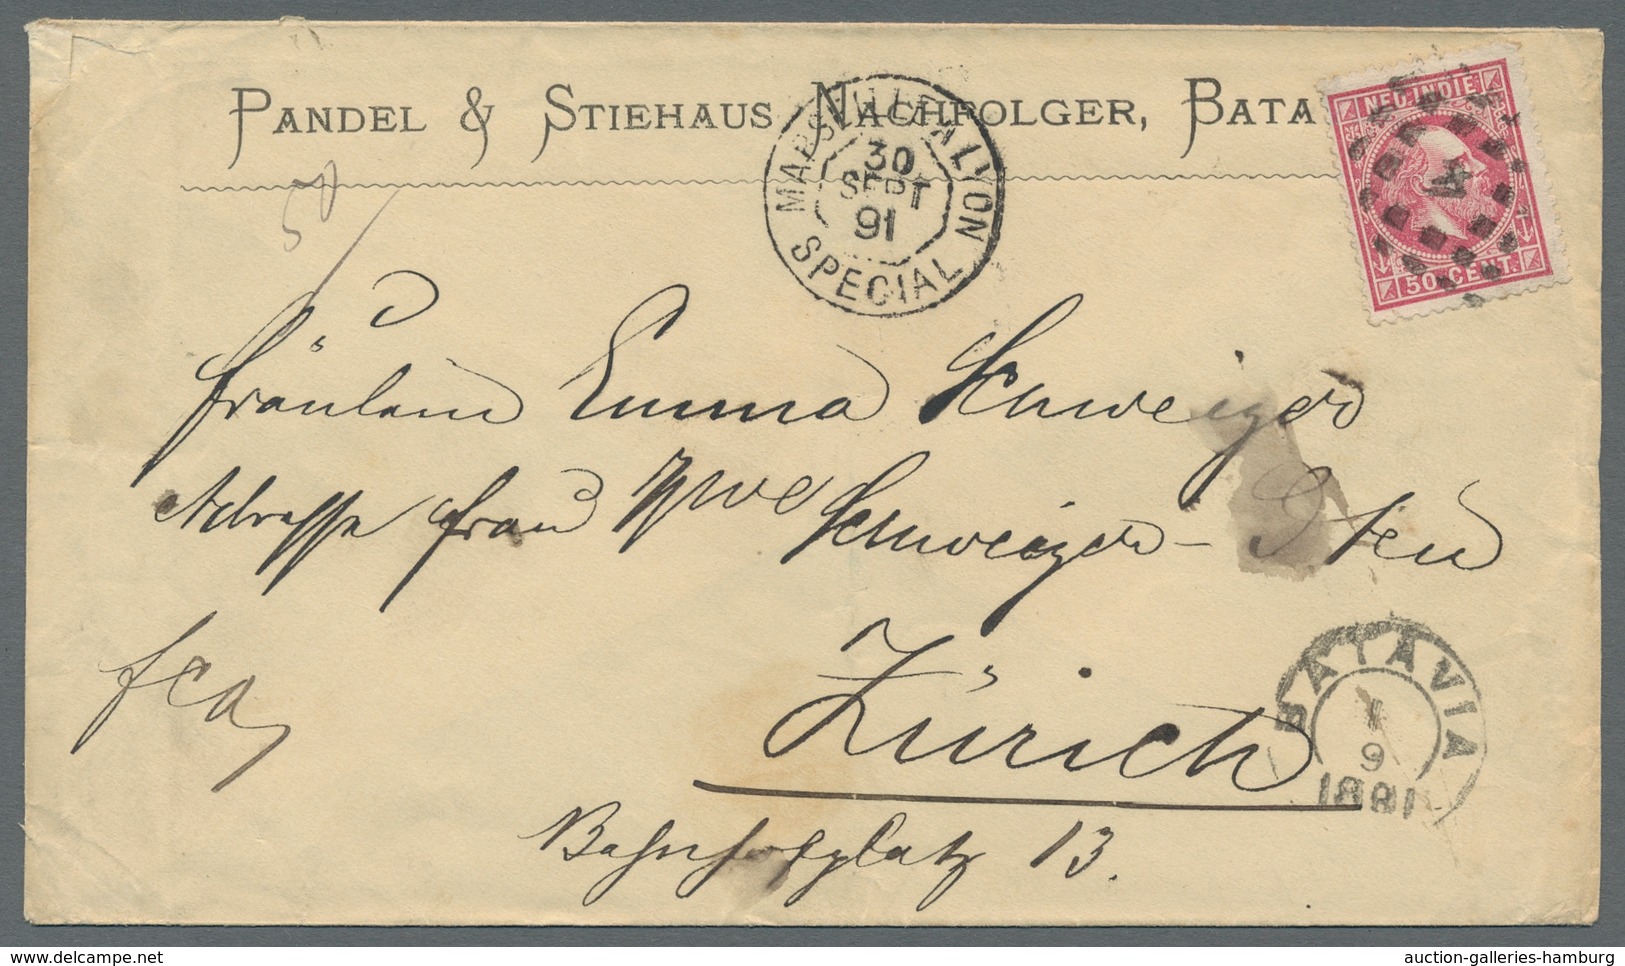 PANDEL & STIEHAUS NACHFOLGER, BATA
NED. INDIE
50 CENT.
MARSEILLE A LYON
30
SEPT
91
SPECIAL
50
Fräulein Emma Schweizer
Adresse Frau Wwe Schweizer-
fco
Zürich
Bahnhofplatz 13.
BATAVIA
1
9
1891
delcampe.net
auction-galleries-hamburg